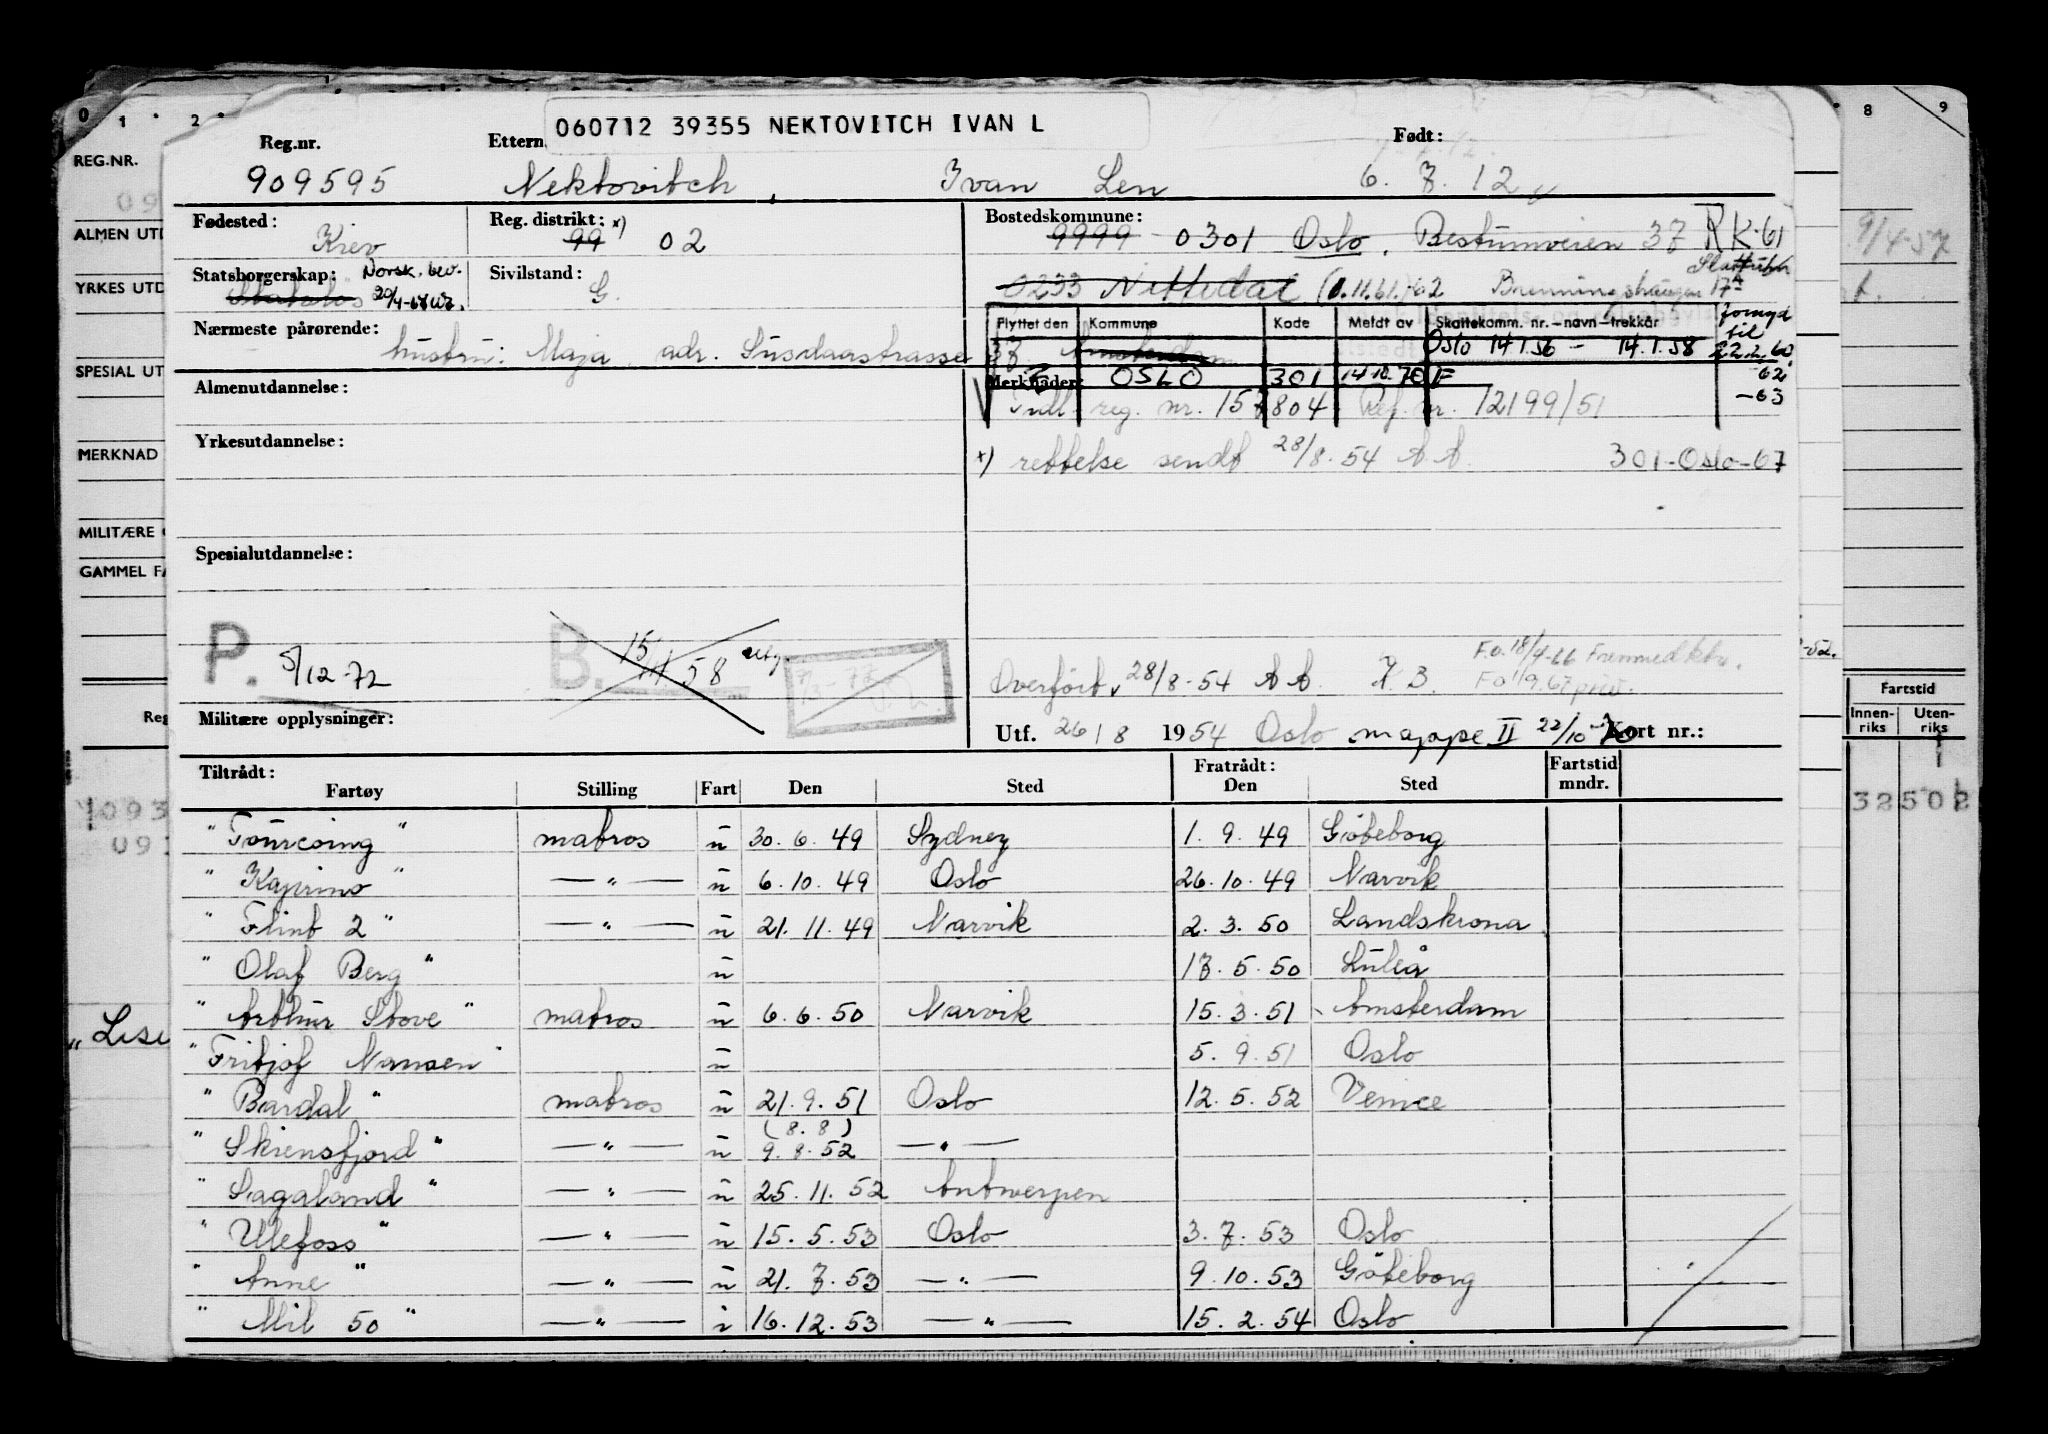 0 1 2 8 9
060712 39355 NEKTOVITCH IVAN L
Reg.nr. Ettern Født:
REG.NR.
909595 Nektovitch, Ivan Len 6.7.12
Fødested: Reg. distrikt: x) Bostedskommune:
Kiev 99 02 9999 0301 Oslo, Bestumveien 37 RK-61
ALMEN UTD 9/4-57
Statsborgerskap: Norsk. bev. Sivilstand:
Statsløs 20/4-67 G. 0233 Nittedal (1.11.61.) 17A
YRKES UTD
Flyttet den Kommune Kode Meldt av Skattekomm. nr.-navn-trekkår fornyd til
Nærmeste pårørende:
hustru: Maja, adr. 37 Amsterdam Oslo 14.1.56 - 14.1.58 22.2.60
SPESIAL UT
OSLO 301 14.10.70 F 62
Almenutdannelse: Merknader:
reg. nr. 157804 Ref. nr. 12199/51 -63
Yrkesutdannelse:
MERKNAD
x) rettelse sendt 28/8-54 AA 301-Oslo-67
MILITÆRE
Spesialutdannelse:
GAMMEL FA
P. 5/12-72 B. 15/11 58 utg.
F.o. 18/4-66 Fremmedktr.
Overført 28/8-54 AA
Militære opplysninger:
Utf. 26/8 1954 Oslo mappe II 22/10-70 Kort nr.:
Reg
Fartstid
Innen-riks Uten-riks
Tiltrådt: Fratrådt: Fartstid
Fartøy Stilling Fart Den Sted Den Sted mndr.
1093 32502
"Tourcoing" matros u 30.6.49 Sydney 1.9.49 Göteborg
"Kapirino" — " — u 6.10.49 Oslo 26.10.49 Narvik
"Flint 2" — " — u 21.11.49 Narvik 2.3.50 Landskrona
"Olaf Berg" u 17.5.50 Luleå
"Arthur Stove" matros u 6.6.50 Narvik 15.3.51 Amsterdam
"Lise
"Fritjof Nansen" u 5.9.51 Oslo
"Bardal" matros u 21.9.51 Oslo 12.5.52 Venice
(8.8)
"Skiensfjord" — " — u 9.8.52 — " —
"Sagaland" — " — u 25.11.52 Antwerpen
"Ulefoss" — " — u 15.5.53 Oslo 3.7.53 Oslo
"Anne" — " — u 21.7.53 — " — 9.10.53 Göteborg
"Mil 50" — " — i 16.12.53 — " — 15.2.54 Oslo